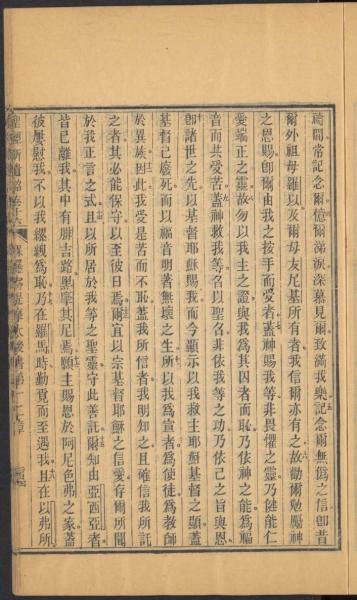 禱間常記念爾憶爾涕淚深慕見爾致滿我樂記念爾無僞之信卽昔
爾外祖母羅以及爾母友尼基所有者我信爾亦有之故勸爾勉勵神
之恩賜卽爾由我之按手而受者蓋神賜我等非畏懼之靈乃健能仁
愛端正之靈故勿以我主之證與我爲其囚者而恥乃依神之能爲福
音而共受苦蓋神救我等召以聖召非依我等之功乃依己之旨與恩
卽諸世之先以基督耶穌賜我而今顯示以我救主耶穌基督之顯蓋
基督已廢死而以福音明著無壞之生所以我爲宣者爲使徒爲教師
於異族因此我受是苦而不恥蓋我所信者我明知之且確信我所託
之者其必能保守以至彼日焉爾宜以宗基督耶穌之信愛存爾所聞
於我正言之式且以所居於我等之聖靈守此善託爾知由亞西亞者
皆已離我其中有腓吉路黑摩其尼焉願主賜恩於阿尼色弗之家蓋
彼屢慰我不以我縲絏爲恥乃在羅馬時勤覓而至遇我且在以弗所